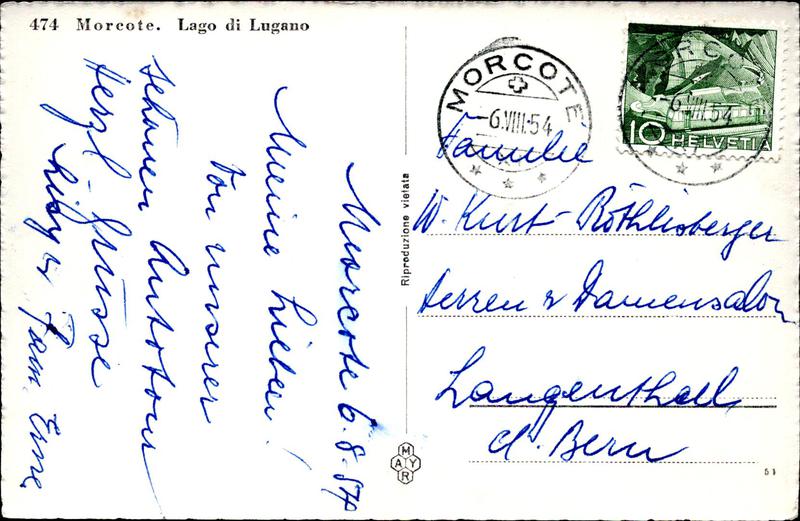 474 Morcote. Lago di Lugano
Morcote 6.8.54
Meine Lieben!
Von unserer
schönen Autotour
Herzl. Grüsse
Fam.
Riproduzione vietata
MAYR
MORCOTE
-6.VIII.54
MORCOTE
-6.VIII.54
10 HELVETIA
Familie
W. Kurt-Röthlisberger
Herren & Damensalon
Langenthal
ct. Bern
51